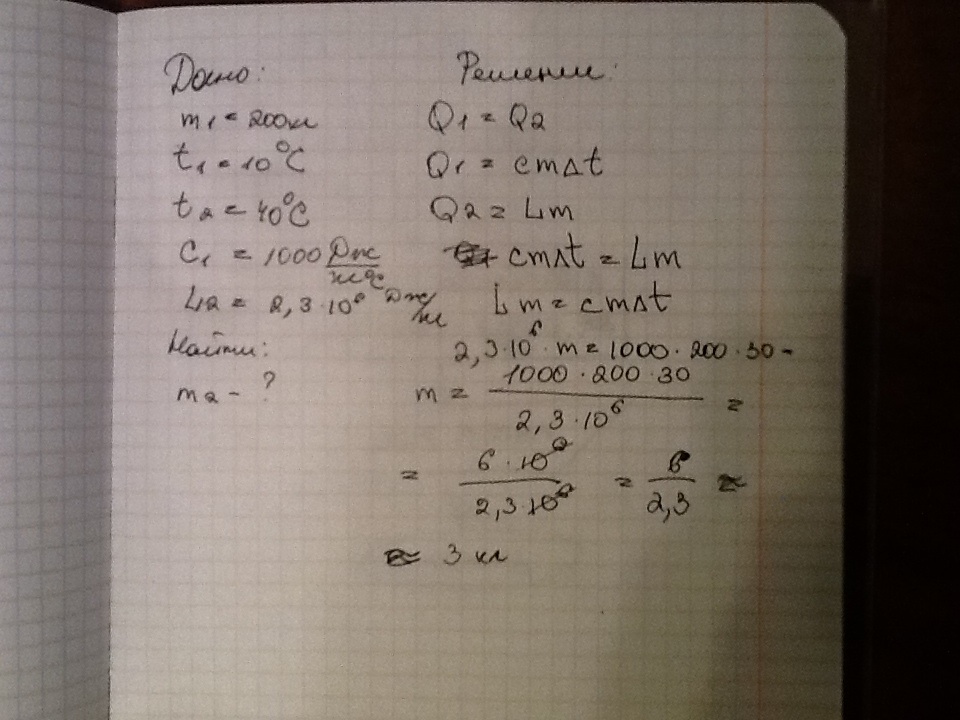 Дано:
m₁ = 200кг
t₁ = 10°C
t₂ = 40°C
C₁ = 1000 Дж/кг°C
L₂ = 2,3·10⁶ Дж/кг
Найти:
m₂ - ?
Решение:
Q₁ = Q₂
Q₁ = cmΔt
Q₂ = Lm
cmΔt = Lm
Lm = cmΔt
2,3·10⁶ · m = 1000 · 200 · 30 -
m = 1000 · 200 · 30 / 2,3 · 10⁶ =
= 6 · 10⁶ / 2,3 · 10⁶ = 6 / 2,3 ≈
≈ 3 кг